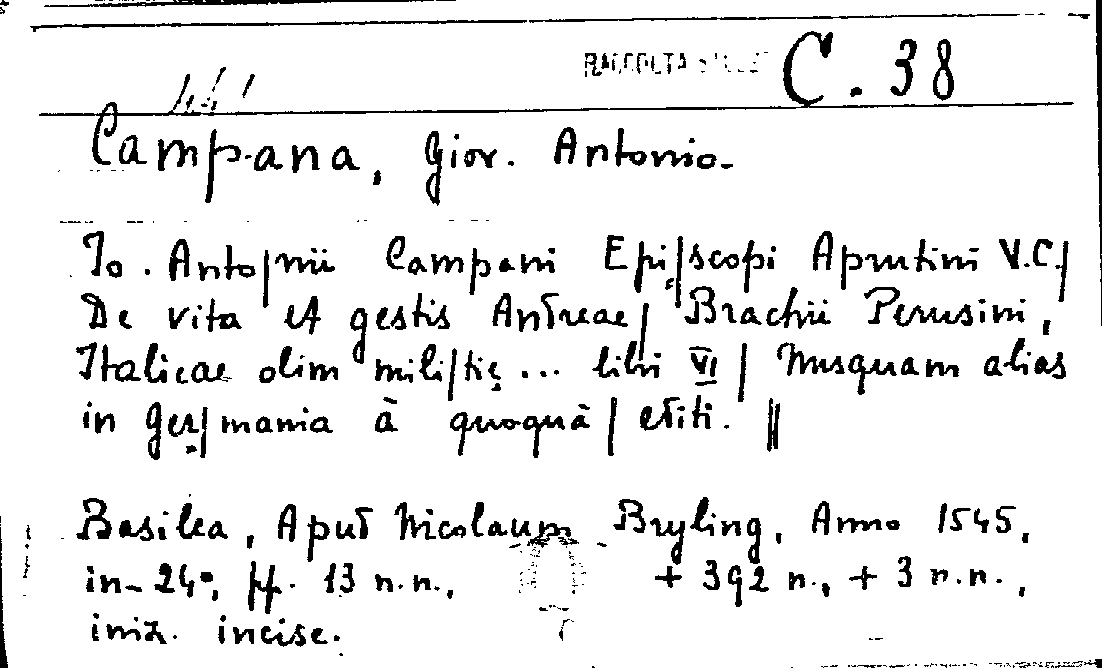 RACCOLTA C. 38
441
Campana, Giov. Antonio.
Io. Anto|nii Campani Epi|scopi Aprutini V.C.|
De vita et gestis Andreae| Brachii Perusini,
Italicae olim mili|tię... libri VI | Nusquam alias
in Ger|mania à quoquā | editi. ||
Basilea, Apud Nicolaum Bryling, Anno 1545,
in-24°, pp. 13 n.n., + 392 n., + 3 n.n.,
iniz. incise.